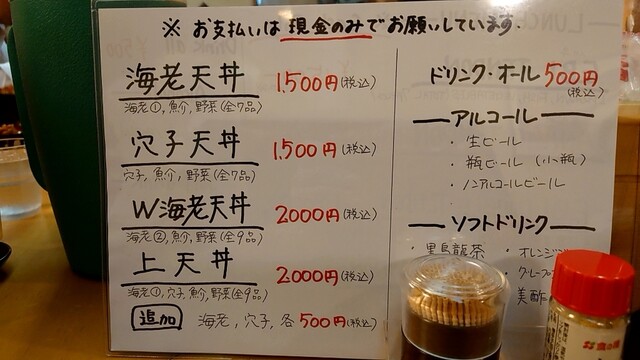 ※ お支払いは 現金のみでお願いしています.
海老天丼 1,500円(税込)
海老①, 魚介, 野菜(全7品)
穴子天丼 1,500円(税込)
穴子, 魚介, 野菜(全7品)
W海老天丼 2000円(税込)
海老②, 魚介, 野菜(全9品)
上天丼 2000円(税込)
海老①, 穴子, 魚介, 野菜(全9品)
追加 海老, 穴子, 各500円(税込)
ドリンク・オール 500円
(税込)
アルコール
・生ビール
・瓶ビール (小瓶)
・ノンアルコールビール
ソフトドリンク
・黒烏龍茶
・オレンジ
・グレープ
美酢